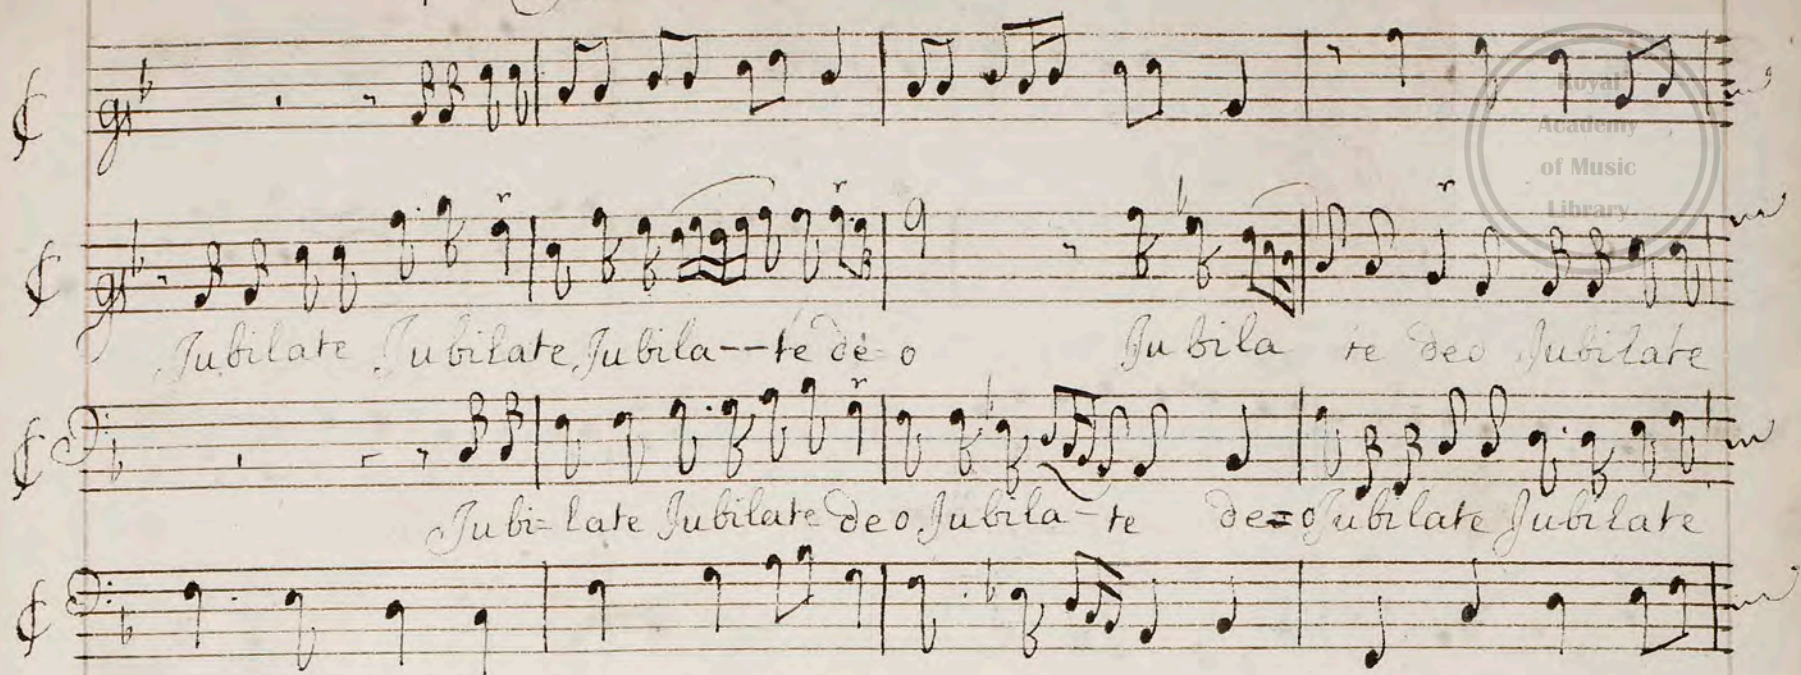 Royal
Academy
of Music
Library
Jubilate Jubilate Jubila--te de=o Jubila te deo Jubilate
Jubi=late Jubilate deo Jubila-te de=o Jubilate Jubilate